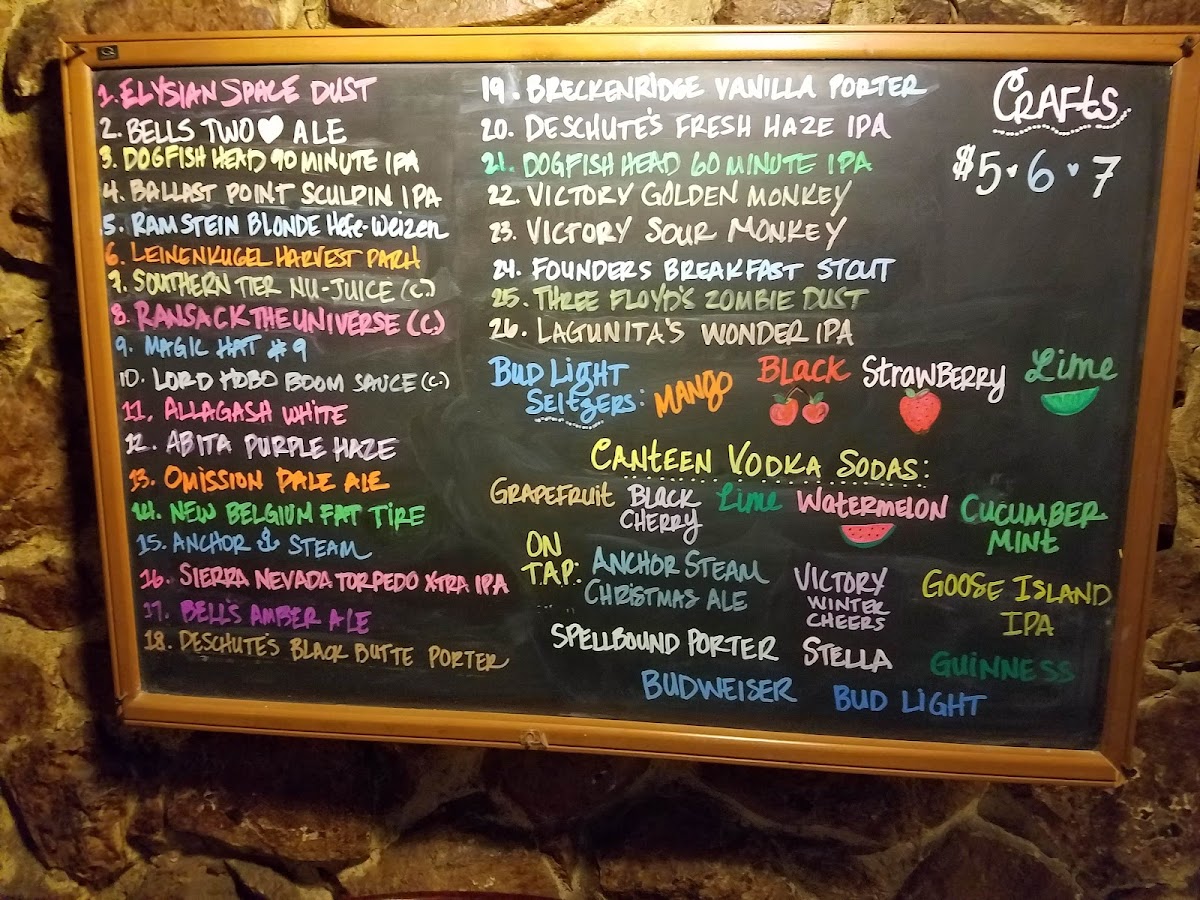 1. ELYSIAN SPACE DUST
2. BELLS TWO ♥ ALE
3. DOGFISH HEAD 90 MINUTE IPA
4. BALLAST POINT SCULPIN IPA
5. RAMSTEIN BLONDE Hefe-Weizen
6. LEINENKUGEL HARVEST PATCH
7. SOUTHERN TIER NU-JUICE (C.)
8. RANSACK THE UNIVERSE (C.)
9. MAGIC HAT #9
10. LORD HOBO BOOM SAUCE (C.)
11. ALLAGASH WHITE
12. ABITA PURPLE HAZE
13. OMISSION PALE ALE
14. NEW BELGIUM FAT TIRE
15. ANCHOR ⚓ STEAM
16. SIERRA NEVADA TORPEDO XTRA IPA
17. BELL'S AMBER ALE
18. DESCHUTE'S BLACK BUTTE PORTER
19. BRECKENRIDGE VANILLA PORTER
20. DESCHUTE'S FRESH HAZE IPA
21. DOGFISH HEAD 60 MINUTE IPA
22. VICTORY GOLDEN MONKEY
23. VICTORY SOUR MONKEY
24. FOUNDERS BREAKFAST STOUT
25. THREE FLOYD'S ZOMBIE DUST
26. LAGUNITA'S WONDER IPA
CRAFTS
$5 · 6 · 7
BUD LIGHT
SELTZERS:
MANGO
BLACK
STRAWBERRY
Lime
CANTEEN VODKA SODAS:
GRAPEFRUIT
BLACK
CHERRY
Lime
WATERMELON
CUCUMBER
MINT
ON
TAP:
ANCHOR STEAM
CHRISTMAS ALE
VICTORY
WINTER
CHEERS
GOOSE ISLAND
IPA
SPELLBOUND PORTER
STELLA
GUINNESS
BUDWEISER
BUD LIGHT